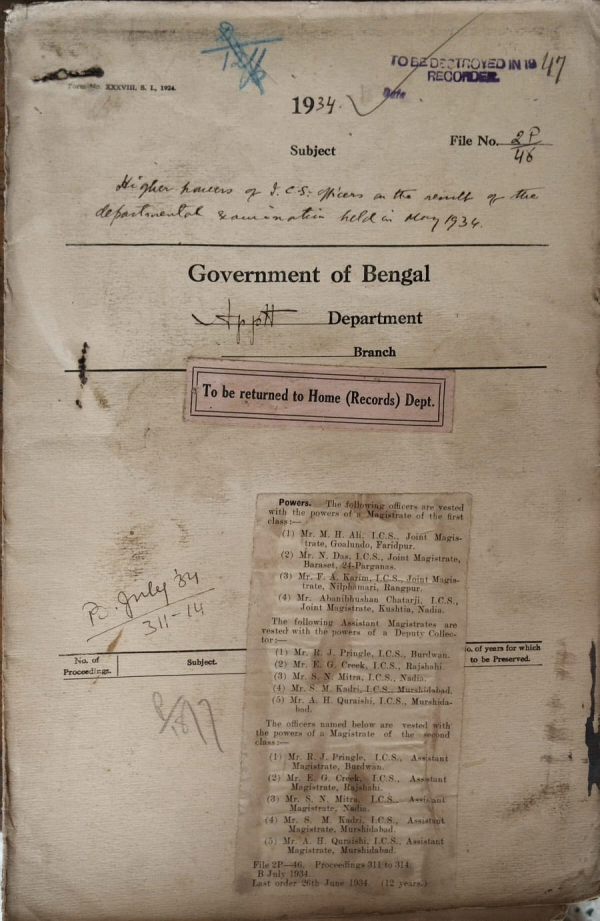 TO BE DESTROYED IN 1947
RECORDER.
Date
Form No. XXXVIII, S. I., 1924.
1934.
Subject
File No. 2P/46
Higher powers of I.C.S. officers on the result of the
departmental examination held in May 1934.
Government of Bengal
Apptt Department
Branch
To be returned to Home (Records) Dept.
Powers. The following officers are vested
with the powers of a Magistrate of the first
class:—
(1) Mr. M. H. Ali, I.C.S., Joint Magis-
trate, Goalundo, Faridpur.
(2) Mr. N. Das, I.C.S., Joint Magistrate,
Baraset, 24-Parganas.
(3) Mr. F. A. Karim, I.C.S., Joint Magis-
trate, Nilphamari, Rangpur.
(4) Mr. Abanibhushan Chatarji, I.C.S.,
Joint Magistrate, Kushtia, Nadia.
The following Assistant Magistrates are
vested with the powers of a Deputy Collec-
tor:—
(1) Mr. R. J. Pringle, I.C.S., Burdwan.
(2) Mr. E. G. Creek, I.C.S., Rajshahi.
(3) Mr. S. N. Mitra, I.C.S., Nadia.
(4) Mr. S. M. Kadri, I.C.S., Murshidabad.
(5) Mr. A. H. Quraishi, I.C.S., Murshida-
bad.
The officers named below are vested with
the powers of Magistrate of the second
class:—
(1) Mr. R. J. Pringle, I.C.S., Assistant
Magistrate, Burdwan.
(2) Mr. E. G. Creek, I.C.S., Assistant
Magistrate, Rajshahi.
(3) Mr. S. N. Mitra, I.C.S., Assistant
Magistrate, Nadia.
(4) Mr. S. M. Kadri, I.C.S., Assistant
Magistrate, Murshidabad.
(5) Mr. A. H. Quraishi, I.C.S., Assistant
Magistrate, Murshidabad.
File 2P—46. Proceedings 311 to 314.
B July 1934.
Last order 26th June 1934. (12 years.)
July '34
311-14
No. of
Proceedings.
Subject.
No. of years for which
to be Preserved.